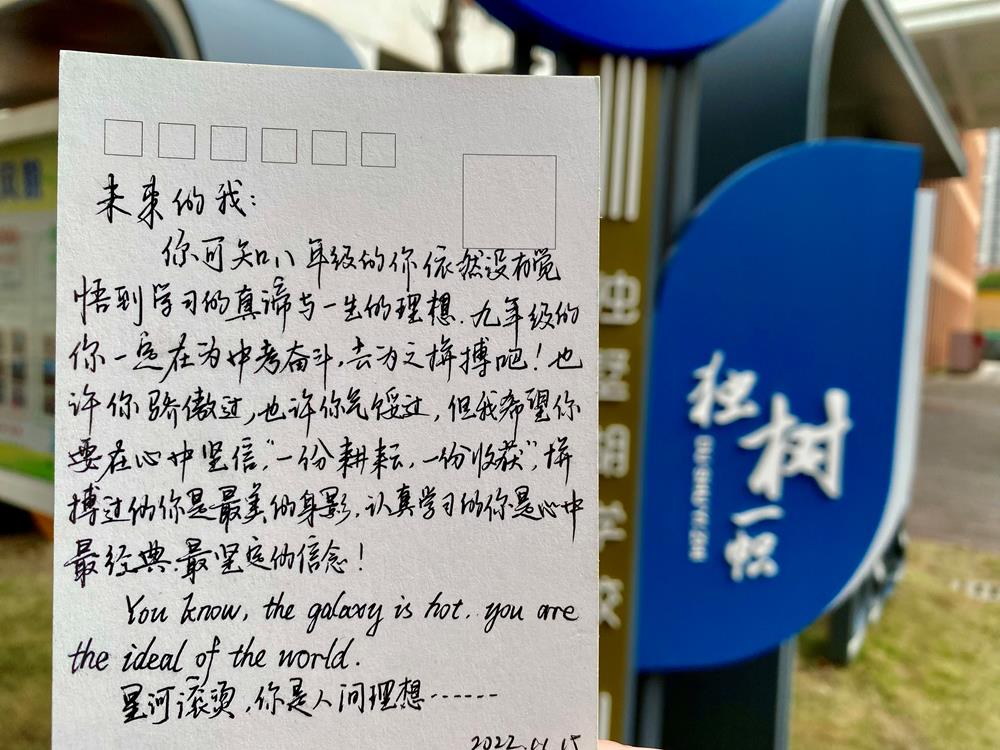 未来的我：
你可知八年级的你依然没有觉
悟到学习的真谛与一生的理想.九年级的
你一定在为中考奋斗,去为之拼搏吧！也
许你骄傲过,也许你气馁过,但我希望你
要在心中坚信,“一份耕耘,一份收获”,拼
搏过的你是最美的身影,认真学习的你是心中
最经典、最坚定的信念！
You know, the galaxy is hot. you are
the ideal of the world.
星河滚烫,你是人间理想------
独树
一帜